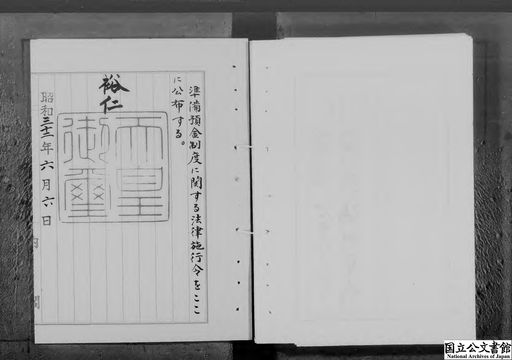 準備預金制度に関する法律施行令をここ
に公布する。
裕仁
天皇
御璽
昭和三十二年六月六日
国立公文書館
National Archives of Japan